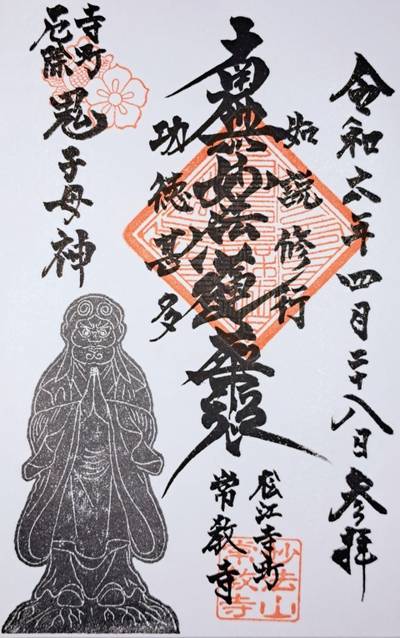 令和六年四月二十八日参拝
如説修行
南無妙法蓮華経
功徳甚多
寺町
厄除
鬼子母神
松江寺町
常教寺
妙法山
常教寺